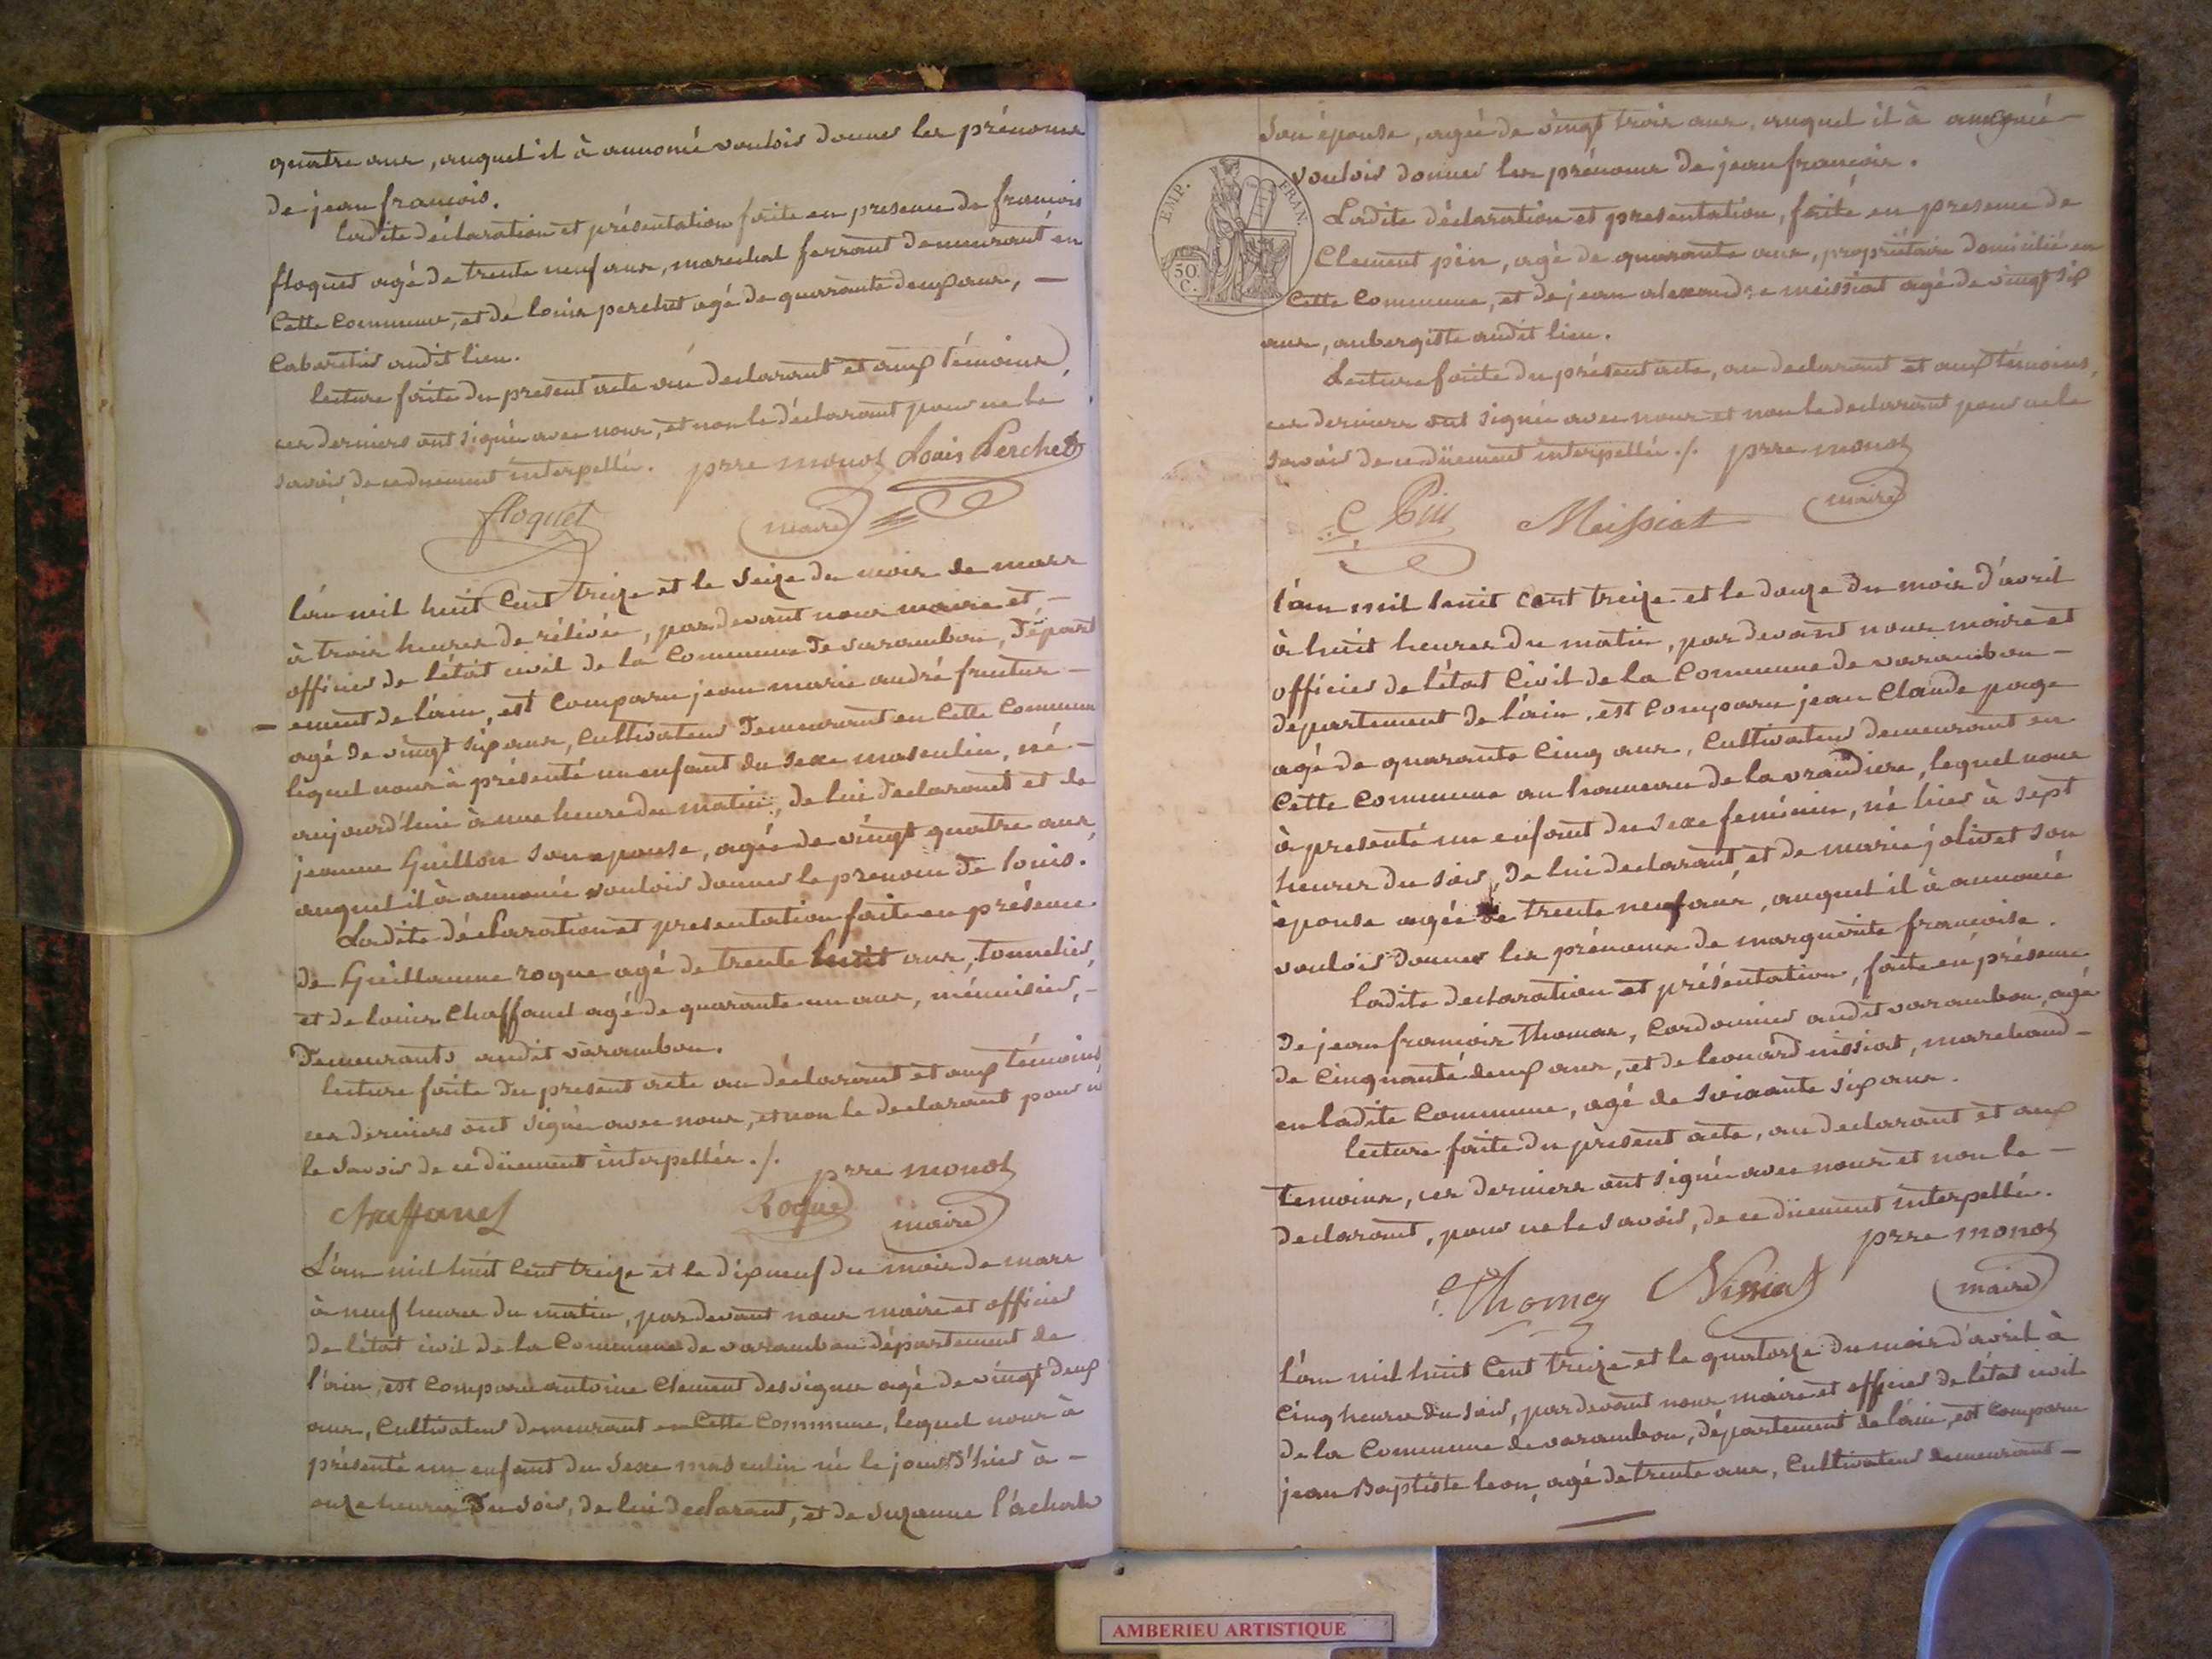 quatre ans, auquel il à annoncé vouloir donner les prénoms
de jean françois.
ladite déclaration et présentation faite en presence de françois
floquet agé de trente neuf ans, marechal ferrant demeurant en
Cette Commune, et de louis perchet agé de quarante deux ans, —
Cabaretier audit lieu.
lecture faite du present acte au declarant et aux témoins,
ces derniers ont signés avec nous, et non le déclarant pour ne le
savoir, de ce duement interpellés. prre monot Louis Perchet
floquet maire
l'an mil huit Cent treize et le seize du mois de mars
à trois heures de rélivée, par devant nous maire et —
officier de l'état civil de la Commune de varambon, départ
— ement de l'ain, est Comparu jean marie andré
agé de vingt six ans, Cultivateur demeurant en Cette Commune
lequel nous à présenté un enfant du sexe masculin, né —
aujourd'hui à une heure du matin, de lui declarant et de
jeanne Guillon son epouse, agée de vingt quatre ans,
auquel il à annoncé vouloir donner le prenom de louis.
Ladite déclaration et presentation faite en présence
de Guillaume roque agé de trente huit ans, tonnelier,
et de louis Chaffanel agé de quarante un ans, ménuisier, —
Demeurants audit varambon.
lecture faite du present acte au déclarant et aux témoins
ces derniers ont signés avec nous, et non le declarant pour n
le savoir de ce duement interpellés ./. prre monot
Chaffanel Roque maire
L'an mil huit Cent treize et le dix neuf du mois de mars
à neuf heures du matin, par devant nous maire et officier
de l'état civil de la Commune de varambon département de
l'ain, est Comparu antoine Clement desvignes agé de vingt deux
ans, Cultivateur demeurant en Cette Commune, lequel nous à
présenté un enfant du sexe masculin né le jour d'hier à —
onze heures du soir, de lui declarant, et de suzanne
Son épouse, agée de vingt trois ans, auquel il à annoncé —
vouloir donner les prénoms de jean françois.
Ladite déclaration et presentation, faite en presence de
Clement pin, agé de quarante ans, propriétaire domicilié en
Cette Commune, et de jean alexandre meissiat agé de vingt six
ans, aubergiste audit lieu.
Lecture faite du présent acte, au declarant et aux témoins,
ces derniers ont signés avec nous et non le declarant pour ne le
savoir de ce duement interpellés ./. prre monot
C Pin Meissiat maire
EMP. FRAN.
50 C.
l'an mil huit Cent treize et le douze du mois d'avril
à huit heures du matin, par devant nous maire et
officier de l'état Civil de la Commune de varambon —
departement de l'ain, est Comparu jean Claude page
agé de quarante Cinq ans, Cultivateur demeurant en
Cette Commune au hameau de la vrandiere, lequel nous
à presenté un enfant du sexe feminin, né hier à sept
heures du soir, de lui declarant et de marie jolivet son
épouse agée de trente neuf ans, auquel il à annoncé
vouloir donner les prénoms de marguerite françoise.
ladite declaration et présentation, faite en présence
de jean françois thomas, Cordonnier audit varambon, agé
de Cinquante deux ans, et de leonard nissiat, marchand —
en ladite Commune, agé de soixante six ans.
lecture faite du present acte, au declarant et aux
temoins, ces derniers ont signés avec nous et non le —
declarant, pour ne le savoir, de ce duement interpellés.
prre monot
Thomas Nissiat maire
l'an mil huit Cent treize et le quatorze du mois d'avril à
Cinq heures du soir, par devant nous maire et officier de l'état civil
de la Commune de varambon, département de l'ain, est Comparu
jean Baptiste leon, agé de trente ans, Cultivateur demeurant —
AMBERIEU ARTISTIQUE